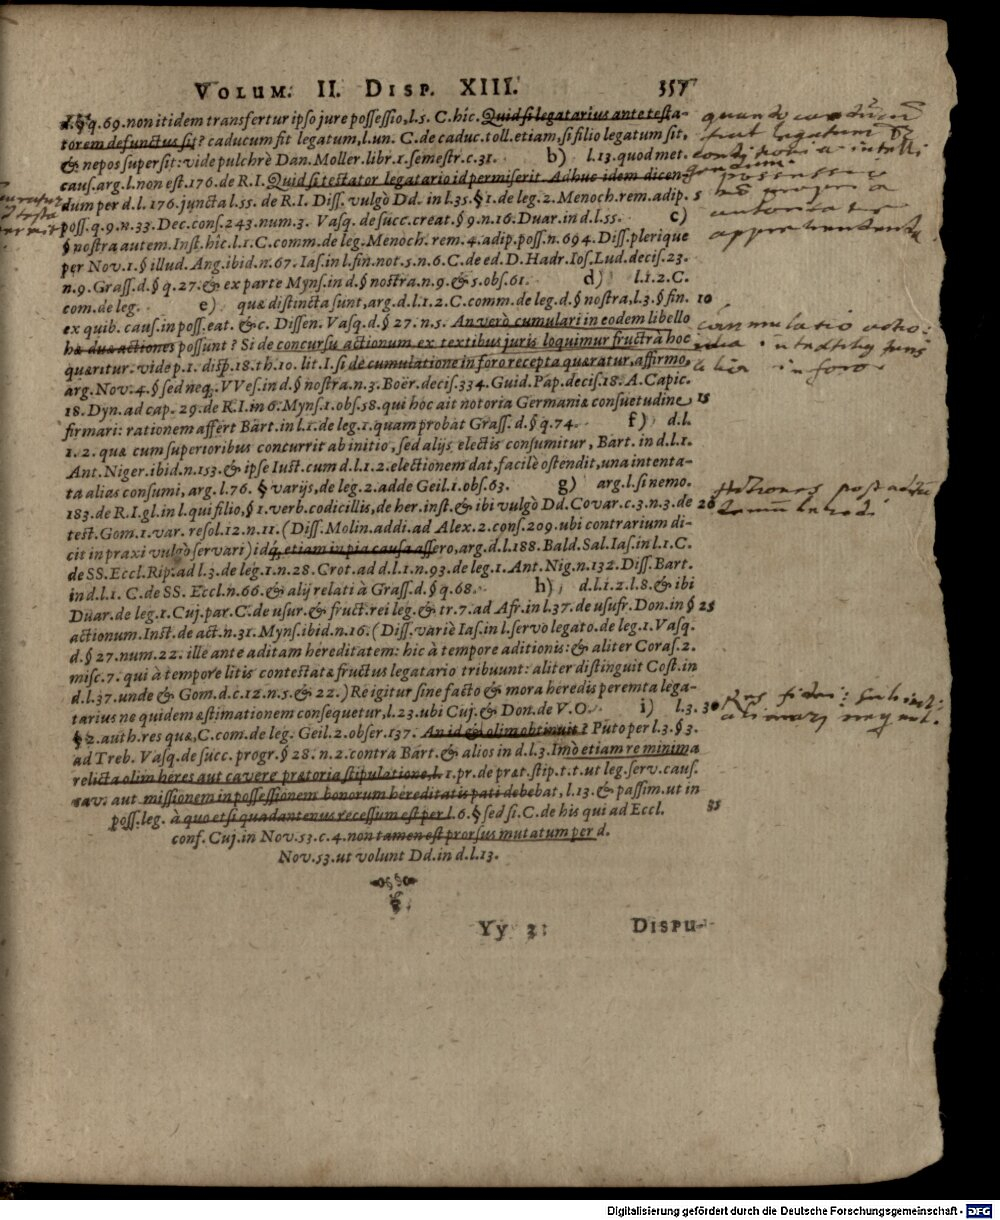 VOLUM. II. DISP. XIII. 357
d. § q. 69. non itidem transfertur ipso jure possessio, l. 5. C. hîc. Quid si legatarius ante testa-
torem defunctus sit? caducum fit legatum, l. un. C. de caduc. toll. etiam, si filio legatum sit,
& nepos supersit: vide pulchrè Dan. Moller. libr. 1. semestr. c. 31. b) l. 13. quod met.
caus. arg. l. non est. 176. de R. I. Quid si testator legatario id permiserit. Adhuc idem dicen-
dum per d. l. 176. juncta l. 55. de R. I. Diss. vulgò Dd. in l. 35. § 1. de leg. 2. Menoch. rem. adip. 5
poss. q. 9. n. 33. Dec. cons. 243. num. 3. Vasq. de succ. creat. § 9. n. 16. Duar. in d. l. 55. c)
§ nostra autem. Inst. hîc. l. 1. C. comm. de leg. Menoch. rem. 4. adip. poss. n. 694. Diss. plerique
per Nov. 1. § illud. Ang. ibid. n. 67. Ias. in l. fin. not. 5. n. 6. C. de ed. D. Hadr. Ios. Lud. decis. 23.
n. 9. Grass. d. § q. 27. & ex parte Myns. in d. § nostra. n. 9. & 5. obs. 61. d) l. 1. 2. C.
com. de leg. e) quæ distincta sunt, arg. d. l. 1. 2. C. comm. de leg. d. § nostra, l. 3. § fin. 10
ex quib. caus. in poss. eat. &c. Dissen. Vasq. d. § 27. n. 5. An verò cumulari in eodem libello
hæ duæ actiones possunt? Si de concursu actionum ex textibus juris loquimur frustrà hoc
quæritur. vide p. 1. disp. 18. th. 10. lit. I. si de cumulatione in foro recepta quæratur, affirmo,
arg. Nov. 4. § sed neq. VVes. in d. § nostra. n. 3. Boër. decis. 334. Guid. Pap. decis. 18. A. Capic.
18. Dyn. ad cap. 29. de R. I. in 6. Myns. 1. obs. 58. qui hoc ait notoria Germaniæ consuetudine 15
firmari: rationem affert Bart. in l. 1. de leg. 1. quam probat Grass. d. § q. 74. f) d. l.
1. 2. quæ cum superioribus concurrit ab initio, sed alijs electis consumitur, Bart. in d. l. 1.
Ant. Niger. ibid. n. 153. & ipse Iust. cum d. l. 1. 2. electionem dat, facilè ostendit, una intenta-
ta alias consumi, arg. l. 76. § varijs, de leg. 2. adde Geil. 1. obs. 63. g) arg. l. si nemo.
183. de R. I. gl. in l. qui filio, § 1. verb. codicillis, de her. inst. & ibi vulgò Dd. Covar. c. 3. n. 3. de 20
test. Gom. 1. var. resol. 12. n. 11. (Diss. Molin. addi. ad Alex. 2. cons. 209. ubi contrarium di-
cit in praxi vulgò servari) idq́, etiam in pia causa assero, arg. d. l. 188. Bald. Sal. Ias. in l. 1. C.
de SS. Eccl. Rip. ad l. 3. de leg. 1. n. 28. Crot. ad d. l. 1. n. 93. de leg. 1. Ant. Nig. n. 132. Diss. Bart.
in d. l. 1. C. de SS. Eccl. n. 66. & alij relati à Grass. d. § q. 68. h) d. l. 1. 2. l. 8. & ibi
Duar. de leg. 1. Cuj. par. C. de usur. & fruct. rei leg. & tr. 7. ad Afr. in l. 37. de usufr. Don. in § 25
actionum. Inst. de act. n. 31. Myns. ibid. n. 16. (Diss. variè Ias. in l. servo legato. de leg. 1. Vasq.
d. § 27. num. 22. ille ante aditam hereditatem: hic à tempore aditionis: & aliter Coras. 2.
misc. 7. qui à tempore litis contestatæ fructus legatario tribuunt: aliter distinguit Cost. in
d. l. 37. unde & Gom. d. c. 12. n. 5. & 22.) Re igitur sine facto & mora heredis peremta lega-
tarius ne quidem æstimationem consequetur, l. 23. ubi Cuj. & Don. de V. O. i) l. 3. 30
§ 2. auth. res quæ, C. com. de leg. Geil. 2. obser. 137. An id & olim obtinuit? Puto per l. 3. § 3.
ad Treb. Vasq. de succ. progr. § 28. n. 2. contra Bart. & alios in d. l. 3. Imò etiam re minima
relicta olim heres aut cavere prætoria stipulatione, l. 1. pr. de præt. stip. t. t. ut leg. serv. caus.
cav. aut missionem in possessionem bonorum hereditatis pati debebat, l. 13. & passim. ut in
poss. leg. à quo etsi quadantenus recessum est per l. 6. § sed si. C. de his qui ad Eccl. 35
conf. Cuj. in Nov. 53. c. 4. non tamen est prorsus mutatum per d.
Nov. 53. ut volunt Dd. in d. l. 13.
Yy 3 DISPU-
quando
legatum
possessio
propria
autoritate
apprehendenda
cummulatio actio:
in foro
Actiones
Digitalisierung gefördert durch die Deutsche Forschungsgemeinschaft - DFG